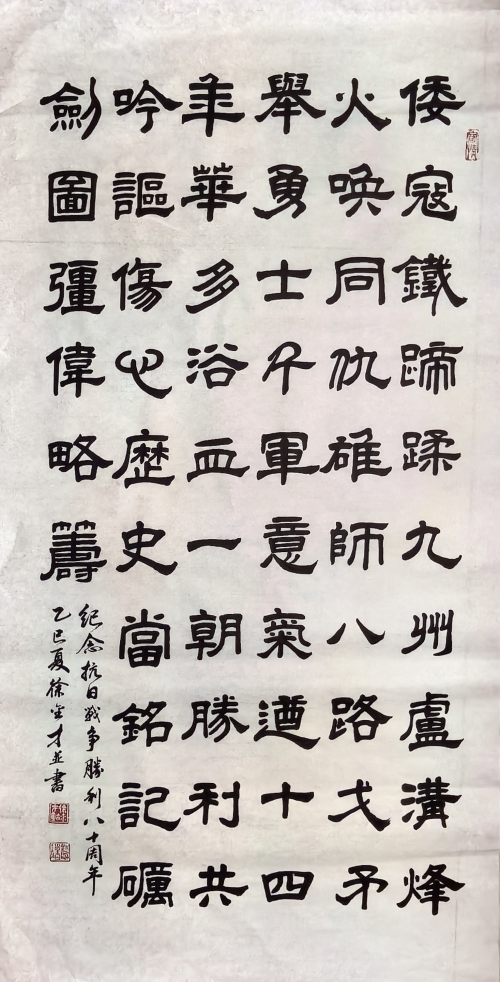 倭寇鐵蹄蹂九州盧溝烽
火喚同仇雄師八路戈矛
舉勇士千軍意氣遒十四
年華多浴血一朝勝利共
吟謳傷心歷史當銘記礪
劍圖彊偉略籌
纪念抗日戰争勝利八十周年
乙巳夏徐才並書